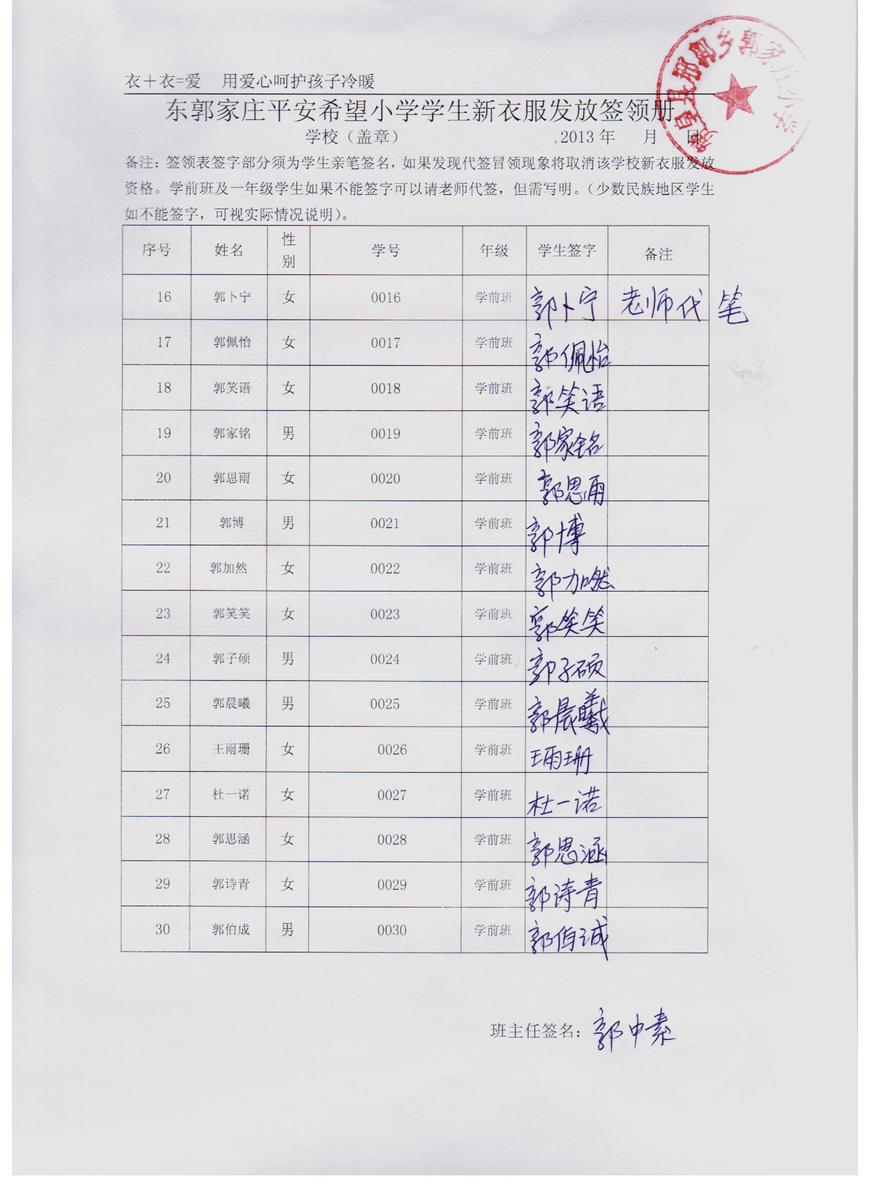 衣＋衣=爱 用爱心呵护孩子冷暖
东郭家庄平安希望小学学生新衣服发放签领册
学校（盖章） 2013 年 月 日
备注：签领表签字部分须为学生亲笔签名，如果发现代签冒领现象将取消该学校新衣服发放
资格。学前班及一年级学生如果不能签字可以请老师代签，但需写明。（少数民族地区学生
如不能签字，可视实际情况说明）。
序号 姓名 性别 学号 年级 学生签字 备注
16 郭卜宁 女 0016 学前班 郭卜宁 老师代笔
17 郭佩怡 女 0017 学前班 郭佩怡
18 郭笑语 女 0018 学前班 郭笑语
19 郭家铭 男 0019 学前班 郭家铭
20 郭思雨 女 0020 学前班 郭思雨
21 郭博 男 0021 学前班 郭博
22 郭加然 女 0022 学前班 郭加然
23 郭笑笑 女 0023 学前班 郭笑笑
24 郭子硕 男 0024 学前班 郭子硕
25 郭晨曦 男 0025 学前班 郭晨曦
26 王雨珊 女 0026 学前班 王雨珊
27 杜一诺 女 0027 学前班 杜一诺
28 郭思涵 女 0028 学前班 郭思涵
29 郭诗青 女 0029 学前班 郭诗青
30 郭伯成 男 0030 学前班 郭伯诚
班主任签名：郭中素